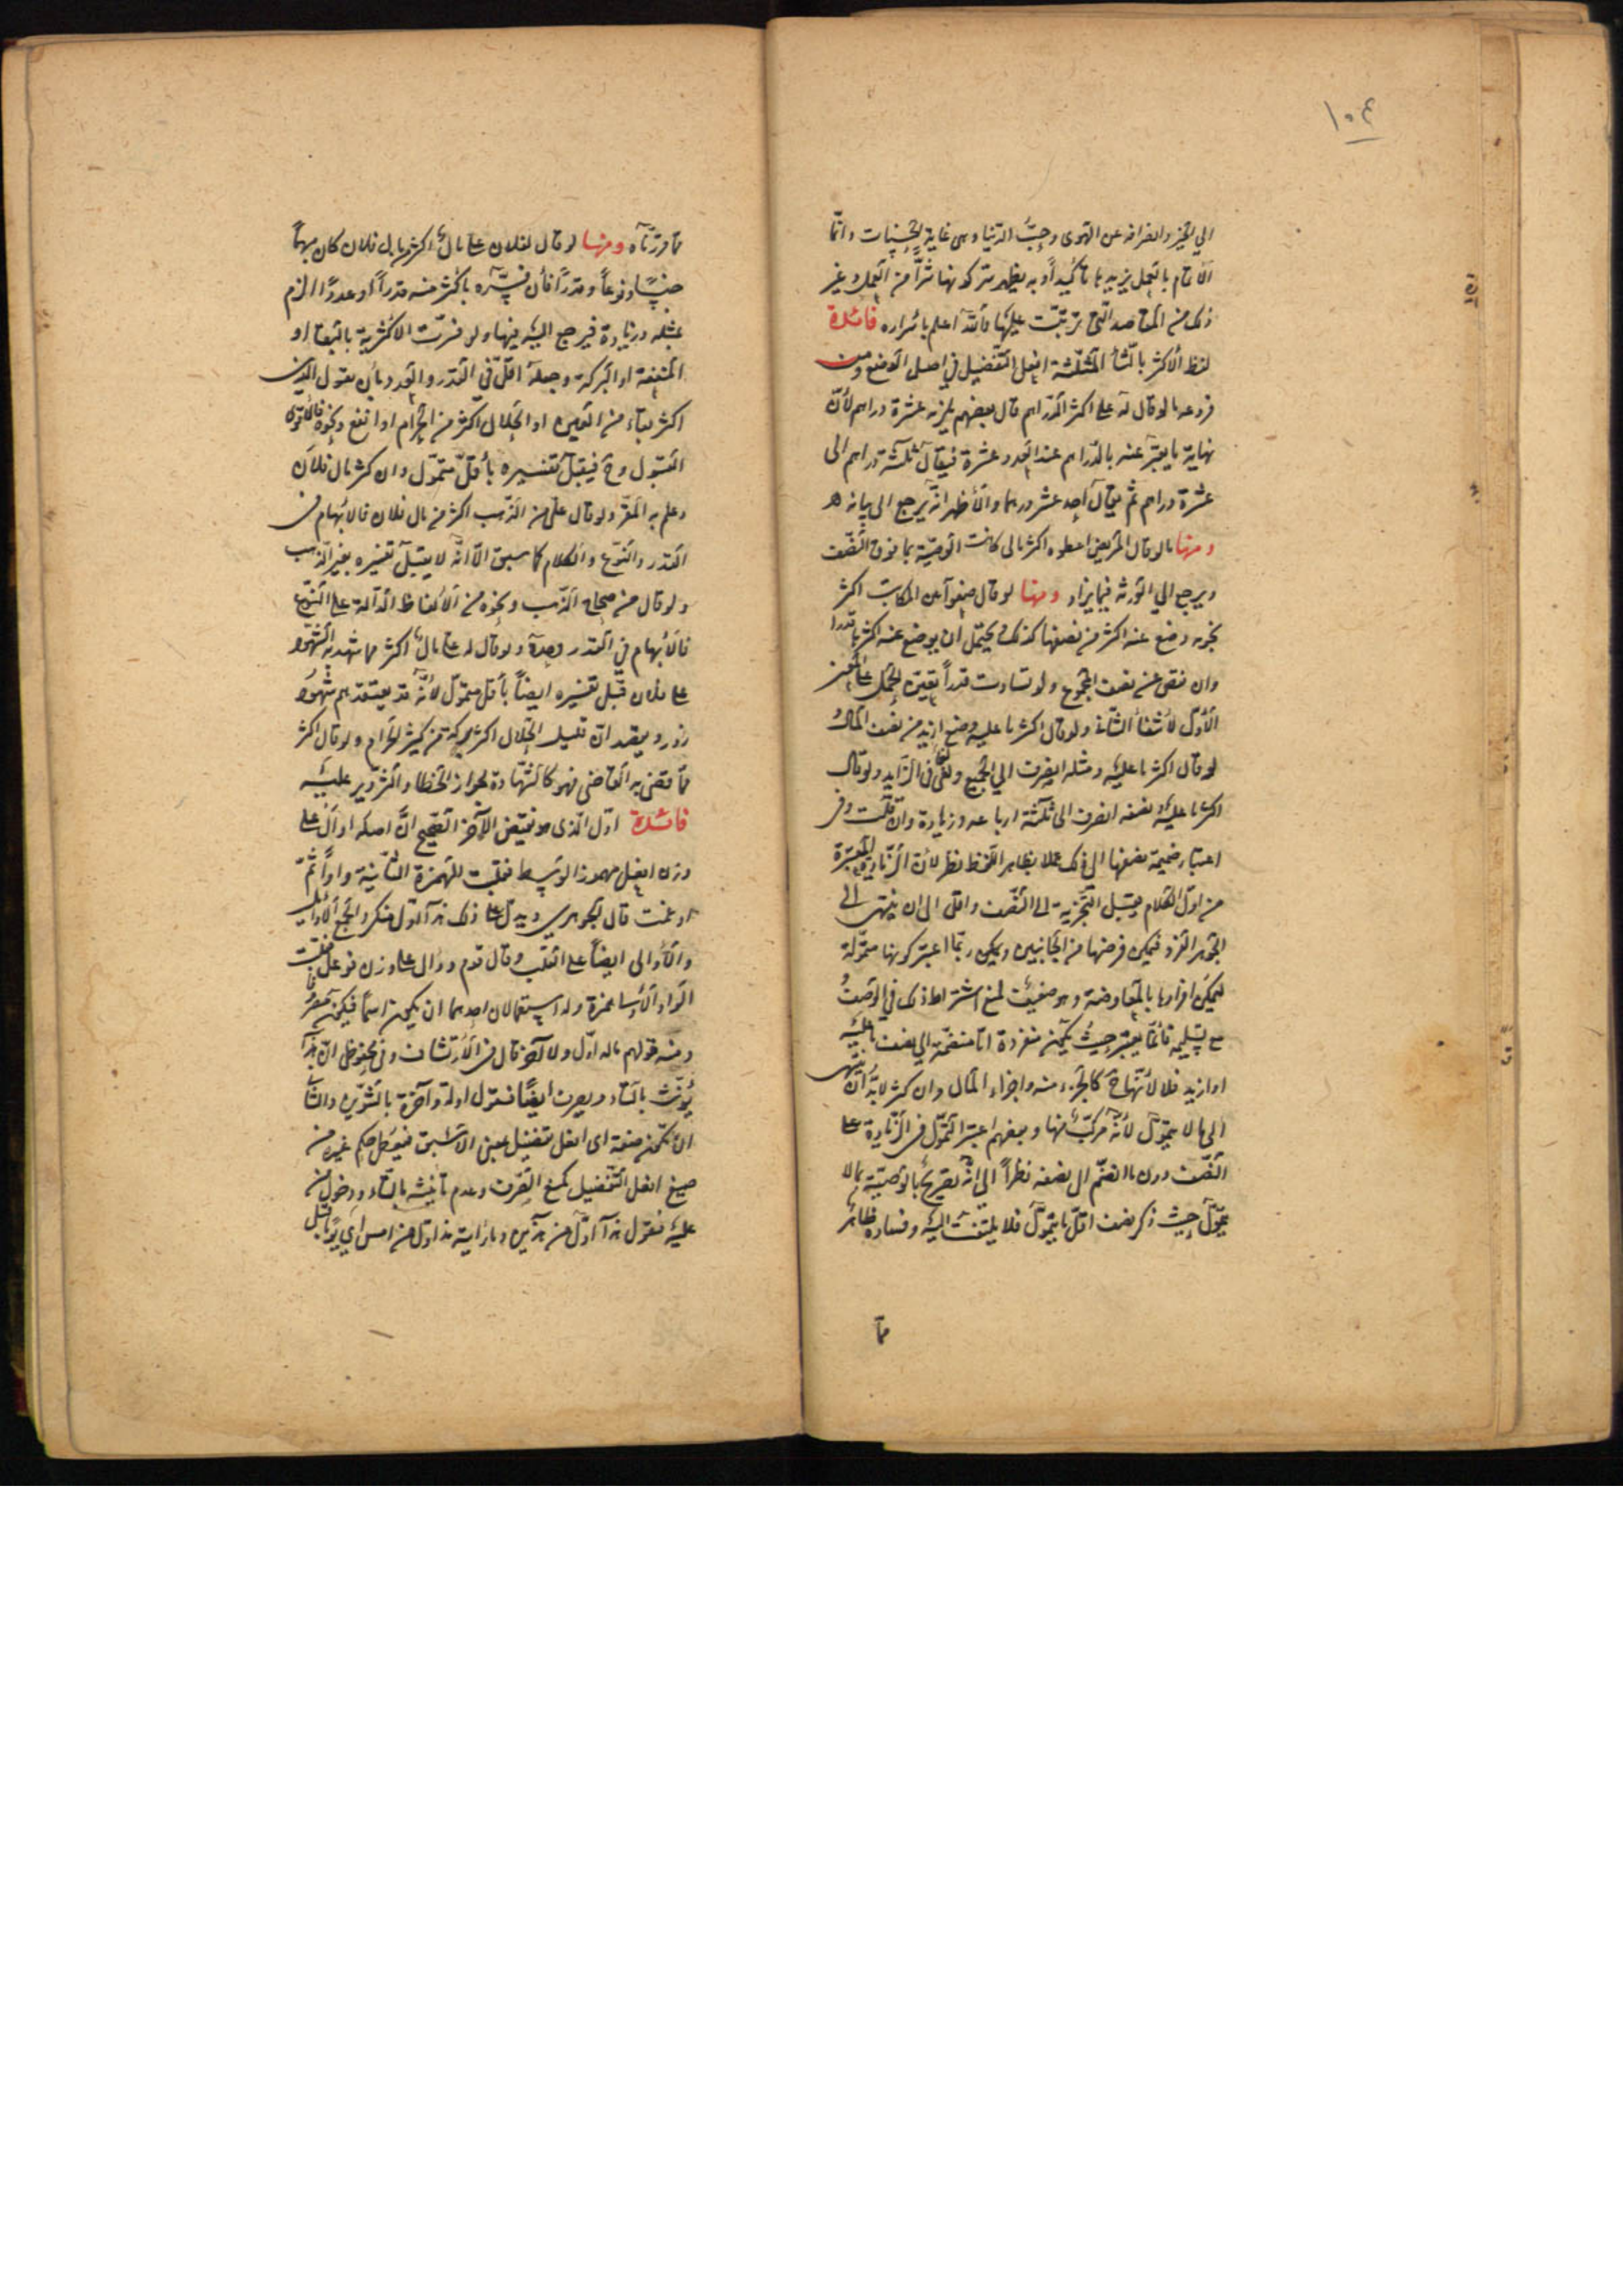 ١٠٤
الي الخير وانصرافه عن الهوى وحبّ الدنيا وهى غاية الحسنات وانّما
الاتمام بالعمل يزيدها تأكيداً وبه يظهر تركه فيها شرّاً من العمل وغير
ذلك من المقاصد التى ترتّبت عليها والله اعلم باسراره فائدة
لفظ الأكثر بالثّاء المثلّثة افعل التفضيل في اصل الوضع ومن
فروعه ما لو قال له على اكثر الدّراهم قال بعضهم يلزمه عشرة دراهم لأنّ
نهاية ما يعبّر عنه بالدّراهم عند العدد عشرة فيقال ثلاثة دراهم الى
عشرة دراهم ثم يقال احد عشر درهما والأظهر انّه يرجع الى بيانه
ومنها ما لو قال المريض اعطوه اكثر مالى كانت الوصيّة بما فوق النّصف
ويرجع الي الورثة فيما يزاد ومنها لو قال ضعوا عن المكاتب اكثر
نجومه وضع عنه اكثر من نصفها كذلك ويحتمل ان يوضع عنه اكثرها قدرا
وان نقص عن نصف المجموع ولو تساوت قدراً تعيّن الحمل على المعنى
الأوّل لانتفاء الثّاني ولو قال اكثر ما عليه وضع ازيد من نصف المال و
لو قال اكثر ما عليه ومثله انصرف الي الجميع ولغى فى الزّايد ولو قال
اكثر ما عليه ونصفه انصرف الى ثلاثة ارباعه وزيادة وان قلّت وفى
اعتبار ضميمة نصفها الى ذلك عملا بظاهر اللّفظ نظر لأنّ الزّيادة المعتبرة
من اوّل الكلام يقبل التجزية الى النّصف واقلّ الى ان ينتهى الى
الجوهر الفرد فيمكن فرضها من الجانبين ويمكن ربّما اعتبر كونها متموّلة
ليمكن افرازها بالمعاوضة وهو ضعيف لمنع اشتراط ذلك في الوصف
مع تسليمه فانّما يعتبر حيث يكون منفردة امّا منضمّة الي نصف ما عليه
او ازيد فلا لأنّها ح كالجزء منه واجزاء المال وان كثر لابدّ ان ينتهى
الى ما لا يتموّل لأنّه مركّب منها وبعضهم اعتبر التموّل فى الزّيادة على
النّصف دون ما انضمّ الى نصفه نظراً الى انّه تصريح بالوصيّة بما لا
يتموّل حيث ذكر نصف اقلّ ما يتموّل فلا يلتفت اليه وفساده ظاهر
ممّا
ممّا قرّرناه ومنها لو قال لفلان على مال اكثر من مال فلان كان مبهماً
جنساً ونوعاً وقدراً فأن فسّره باكثر منه قدراً او عدداً الزم
بمثله وزيادة فيرجع اليه فيها ولو فسّرت الاكثرية بالبقاء او
المنفعة او البركة وجعله اقلّ في القدر والعدد بأن يقول الدين
اكثر بقاء من العين او الحلال اكثر من الحرام او انفع ونحوه فالأقوى
القبول وح فيقبل تفسيره بأقلّ متموّل وان كثر مال فلان
وعلم به المقرّ ولو قال علىّ من الذّهب اكثر من مال فلان فالابهام فى
القدر والنّوع والكلام كما سبق الّا انّه لا يقبل تفسيره بغير الذّهب
ولو قال من صحاح الذّهب ونحوه من الألفاظ الدّالة على النّوع
فالأبهام في القدر وحده ولو قال له على مال اكثر مما شهد به الشّهود
على فلان قبل تفسيره ايضاً بأقلّ متموّل لأنّه قد يعتقدهم شهود
زور ويقصد انّ قليل الحلال اكثر بركة من كثير الحرام ولو قال اكثر
ممّا قضى به القاضى فهو كالشّهادة لجواز الخطا والتزوير عليه
فائدة اوّل الّذى هو نقيض الآخر الصّحيح انّ اصله اوأل على
وزن افعل مهموز الوسط فقلبت الهمزة الثّانية واواً ثمّ
ادغمت قال الجوهري ويدلّ على ذلك هذا اوّل منك والجمع الأوائل
والأوالى ايضاً على القلب وقال قوم ووال على وزن فوعل فقلبت
الواو الأولى همزة وله استعمالان احدهما ان يكون اسماً فيكون مصروفا
ومنه قولهم ماله اوّل ولا آخر قال فى الأرتشاف وفى محفوظى انّ هذا
يؤنّث بالتاء ويصرف ايضاً فنقول اولة وآخرة بالتنوين والثّانى
ان يكون صفة اى افعل تفضيل بمعنى الاسبق فيعطى حكم غيره من
صيغ افعل التّفضيل كمنع الصّرف وعدم تأنيثه بالتاء ودخول من
عليه فنقول هذا اوّل من هذين وما رأيته مذ اوّل من امس اي يوما قبل